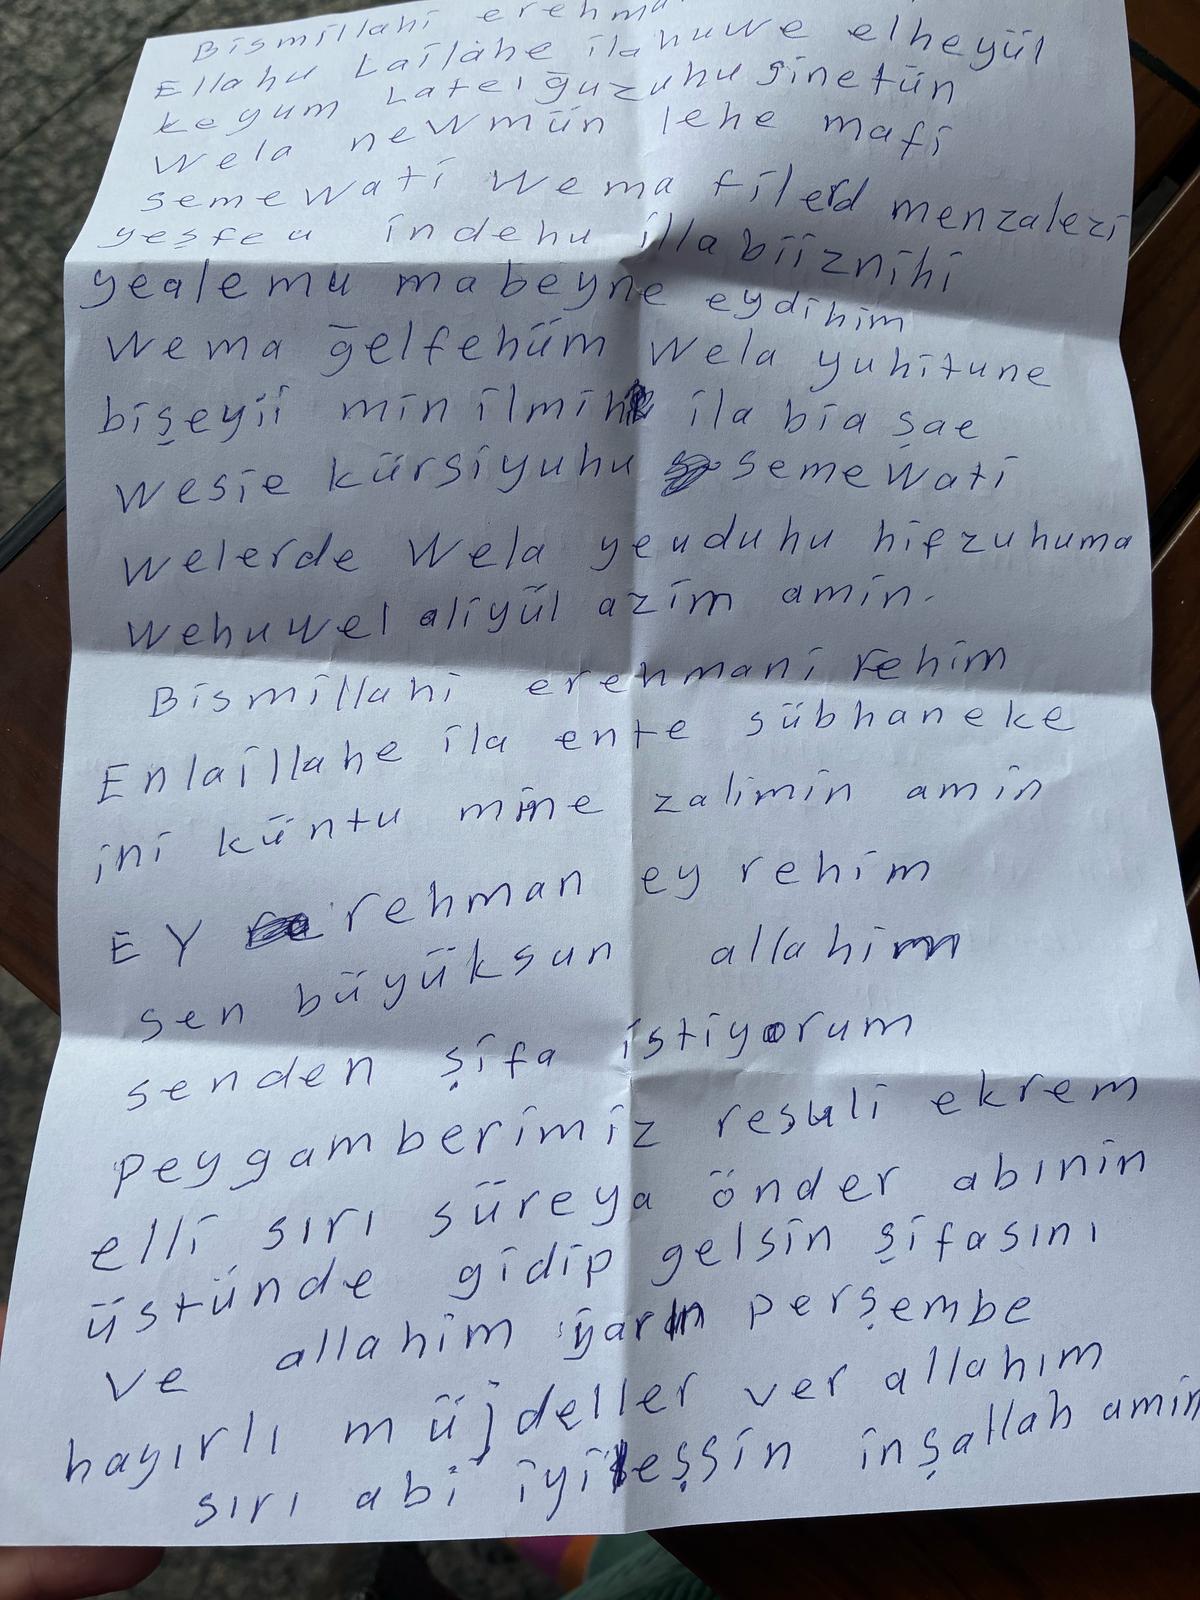 Bismillahi erehma
Ellahu Lailahe ilahuwe elheyül
keyum Latelğuzuhu sinetün
wela newmün lehe mafi
semewati wema filerd menzalezi
yeşfeu indehu illa biiznihi
yealemu mabeyne eydihim
wema ğelfehüm wela yuhitune
bişeyii min ilmihi ila bia şae
wesie kürsiyuhu semewati
welerde wela yeuduhu hifzuhuma
wehuwel aliyül azim amin.
Bismillahi erehmani rehim
Enlaillahe ila ente sübhaneke
ini küntu mine zalimin amin
EY rehman ey rehim
sen büyüksun allahim
senden şifa istiyorum
peygamberimiz resuli ekrem
elli sırı süreya önder abının
üstünde gidip gelsin şifasını
ve allahim yarın perşembe
hayırlı müjdeller ver allahım
sırı abi iyileşsin inşallah amin